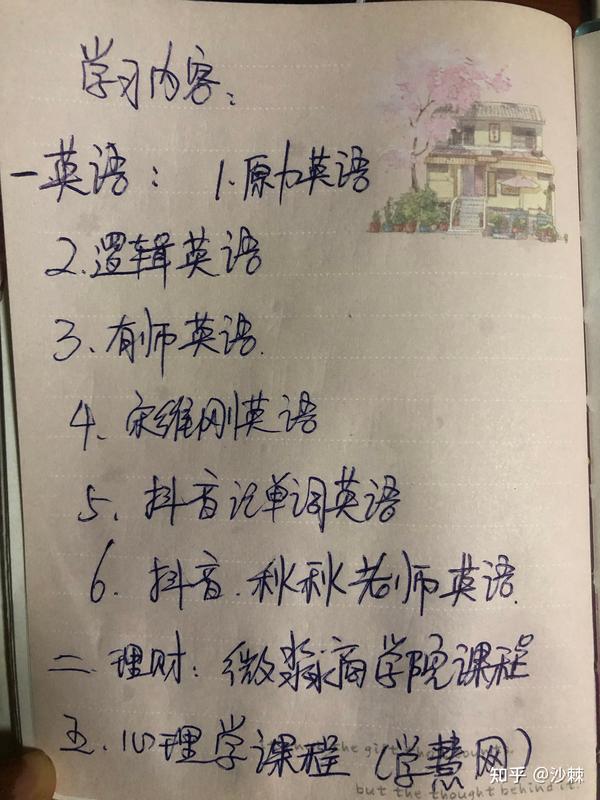 学习内容：
一英语：1.原力英语
2.逻辑英语
3、有师英语.
4、宋维刚英语
5、抖音记单词英语
6、抖音.秋秋老师英语.
二理财：微淼商学院课程
五.心理学课程（学慧网）
the gift
but the thought behind it.
知乎 @沙棘